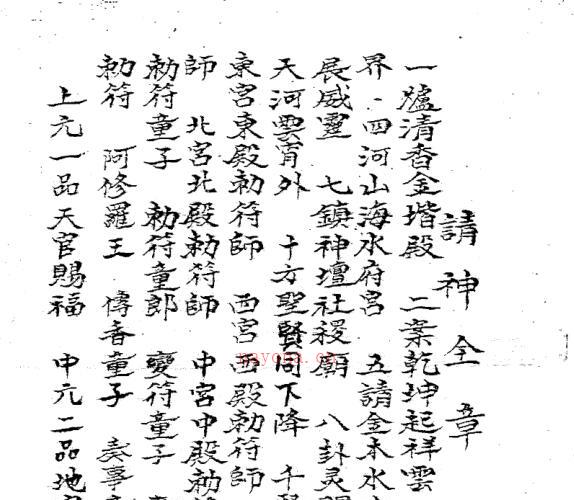 請神全章
一爐清香金堦殿 二案乾坤起祥雲
界 四河山海水府宮 五請金木水
展威靈 七鎮神壇社稷廟 八卦灵
天河雲宵外 十方聖賢同下降 千
東宮東殿勅符師 西宮西殿勅符師
師 北宮北殿勅符師 中宮中殿勅
勅符童子 勅符童郎 變符童子
勅符 阿修羅王 傳香童子 奏事
上元一品天官賜福 中元二品地
nayona.cn